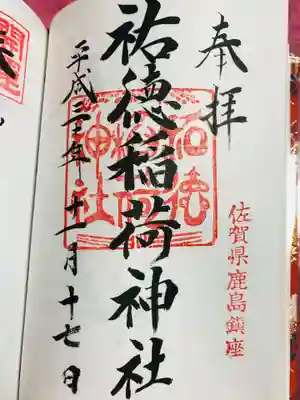 奉拝
佐賀県鹿島鎮座
祐徳稲荷神社
平成三十年十一月十七日